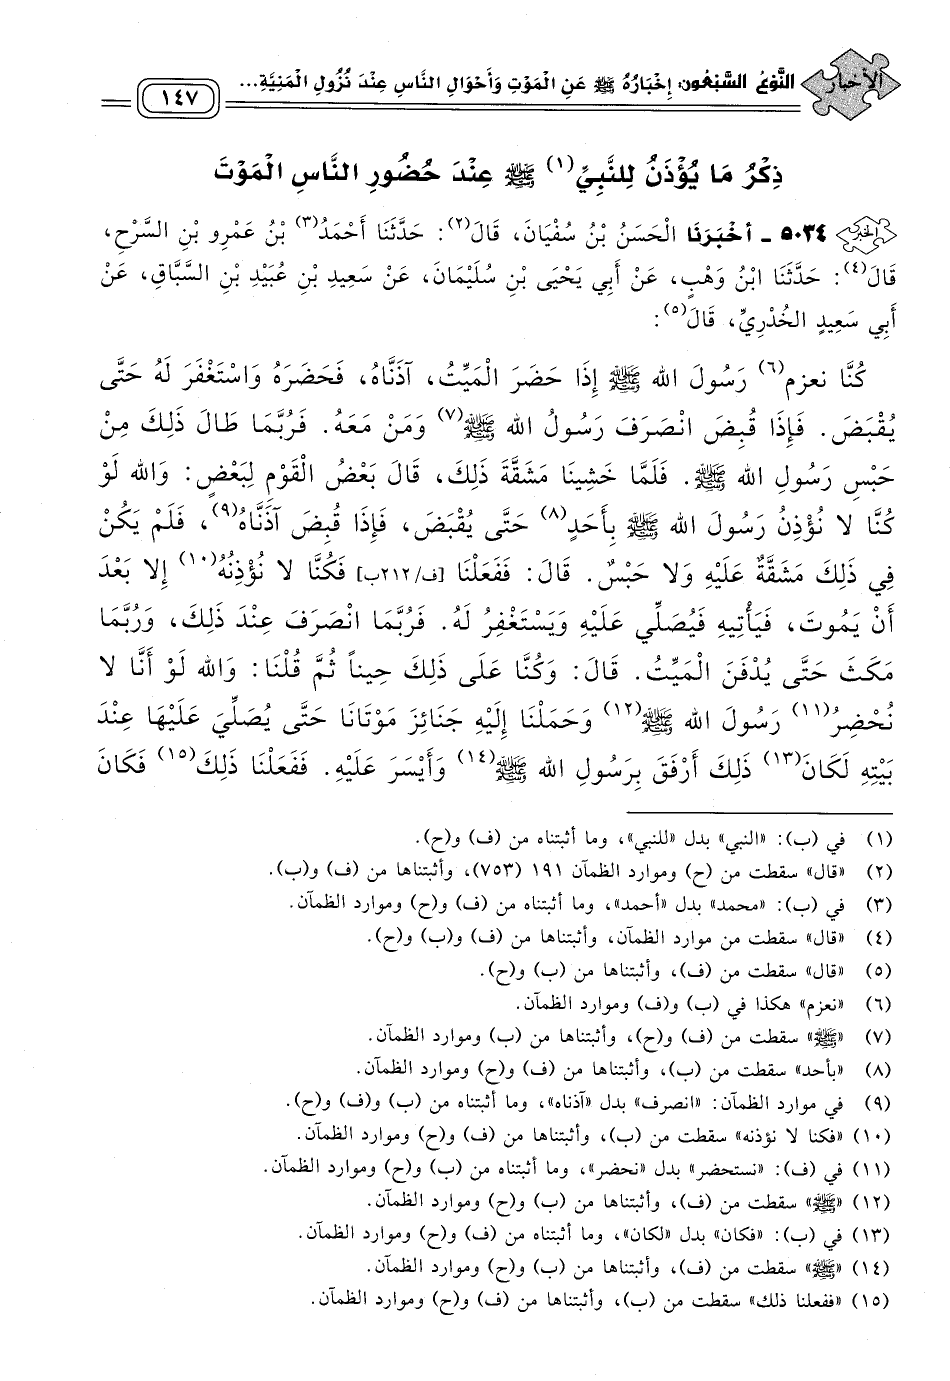 الأخبار النَّوْعُ السَّبْعُون: إِخْبَارُهُ ﷺ عَنِ الْمَوْتِ وَأَحْوَالِ النَّاسِ عِنْدَ نُزُولِ الْمَنِيَّةِ... ١٤٧
ذِكْرُ مَا يُؤْذَنُ لِلنَّبِيِّ(١) ﷺ عِنْدَ حُضُورِ النَّاسِ الْمَوْتَ
الخبر ٥٠٣٤ ـ أخْبَرَنَا الْحَسَنُ بْنُ سُفْيَانَ، قَالَ(٢): حَدَّثَنَا أَحْمَدُ(٣) بْنُ عَمْرِو بْنِ السَّرْحِ،
قَالَ(٤): حَدَّثَنَا ابْنُ وَهْبٍ، عَنْ أَبِي يَحْيَى بْنِ سُلَيْمَانَ، عَنْ سَعِيدِ بْنِ عُبَيْدِ بْنِ السَّبَّاقِ، عَنْ
أَبِي سَعِيدٍ الخُدْرِيِّ، قَالَ(٥):
كُنَّا نعزم(٦) رَسُولَ الله ﷺ إِذَا حَضَرَ الْمَيِّتُ، آذَنَّاهُ، فَحَضَرَهُ وَاسْتَغْفَرَ لَهُ حَتَّى
يُقْبَضَ. فَإِذَا قُبِضَ انْصَرَفَ رَسُولُ الله ﷺ(٧) وَمَنْ مَعَهُ. فَرُبَّمَا طَالَ ذَلِكَ مِنْ
حَبْسِ رَسُولِ الله ﷺ. فَلَمَّا خَشِينَا مَشَقَّةَ ذَلِكَ، قَالَ بَعْضُ الْقَوْمِ لِبَعْضٍ: وَالله لَوْ
كُنَّا لا نُؤْذِنُ رَسُولَ الله ﷺ بِأَحَدٍ(٨) حَتَّى يُقْبَضَ، فَإِذَا قُبِضَ آذَنَّاهُ(٩)، فَلَمْ يَكُنْ
فِي ذَلِكَ مَشَقَّةٌ عَلَيْهِ وَلا حَبْسٌ. قَالَ: فَفَعَلْنَا [ف/٢١٢ب] فَكُنَّا لا نُؤْذِنُهُ(١٠) إِلا بَعْدَ
أَنْ يَمُوتَ، فَيَأْتِيهِ فَيُصَلِّي عَلَيْهِ وَيَسْتَغْفِرُ لَهُ. فَرُبَّمَا انْصَرَفَ عِنْدَ ذَلِكَ، وَرُبَّمَا
مَكَثَ حَتَّى يُدْفَنَ الْمَيِّتُ. قَالَ: وَكُنَّا عَلَى ذَلِكَ حِيناً ثُمَّ قُلْنَا: وَالله لَوْ أَنَّا لا
نُحْضِرُ(١١) رَسُولَ الله ﷺ(١٢) وَحَمَلْنَا إِلَيْهِ جَنَائِزَ مَوْتَانَا حَتَّى يُصَلِّيَ عَلَيْهَا عِنْدَ
بَيْتِهِ لَكَانَ(١٣) ذَلِكَ أَرْفَقَ بِرَسُولِ الله ﷺ(١٤) وَأَيْسَرَ عَلَيْهِ. فَفَعَلْنَا ذَلِكَ(١٥) فَكَانَ
(١) في (ب): «النبي» بدل «للنبي»، وما أثبتناه من (ف) و(ح).
(٢) «قال» سقطت من (ح) وموارد الظمآن ١٩١ (٧٥٣)، وأثبتناها من (ف) و(ب).
(٣) في (ب): «محمد» بدل «أحمد»، وما أثبتناه من (ف) و(ح) وموارد الظمآن.
(٤) «قال» سقطت من موارد الظمآن، وأثبتناها من (ف) و(ب) و(ح).
(٥) «قال» سقطت من (ف)، وأثبتناها من (ب) و(ح).
(٦) «نعزم» هكذا في (ب) و(ف) وموارد الظمآن.
(٧) «ﷺ» سقطت من (ف) و(ح)، وأثبتناها من (ب) وموارد الظمآن.
(٨) «بأحد» سقطت من (ب)، وأثبتناها من (ف) و(ح) وموارد الظمآن.
(٩) في موارد الظمآن: «انصرف» بدل «آذناه»، وما أثبتناه من (ب) و(ف) و(ح).
(١٠) «فكنا لا نؤذنه» سقطت من (ب)، وأثبتناها من (ف) و(ح) وموارد الظمآن.
(١١) في (ف): «نستحضر» بدل «نحضر»، وما أثبتناه من (ب) و(ح) وموارد الظمآن.
(١٢) «ﷺ» سقطت من (ف)، وأثبتناها من (ب) و(ح) وموارد الظمآن.
(١٣) في (ب): «فكان» بدل «لكان»، وما أثبتناه من (ف) و(ح) وموارد الظمآن.
(١٤) «ﷺ» سقطت من (ف)، وأثبتناها من (ب) و(ح) وموارد الظمآن.
(١٥) «ففعلنا ذلك» سقطت من (ب)، وأثبتناها من (ف) و(ح) وموارد الظمآن.